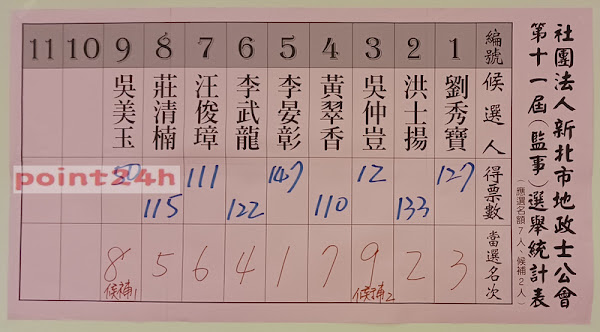 社團法人新北市地政士公會
第十一屆（監事）選舉統計表
（應選名額7人、候補2人）
編號 候選人 得票數 當選名次
1 劉秀寶 127 3
2 洪士揚 133 2
3 吳仲豈 12 9 候補2
4 黃翠香 110 7
5 李晏彰 147 1
6 李武龍 122 4
7 汪俊璋 111 6
8 莊清楠 115 5
9 吳美玉 50 8 候補1
10
11
point24h